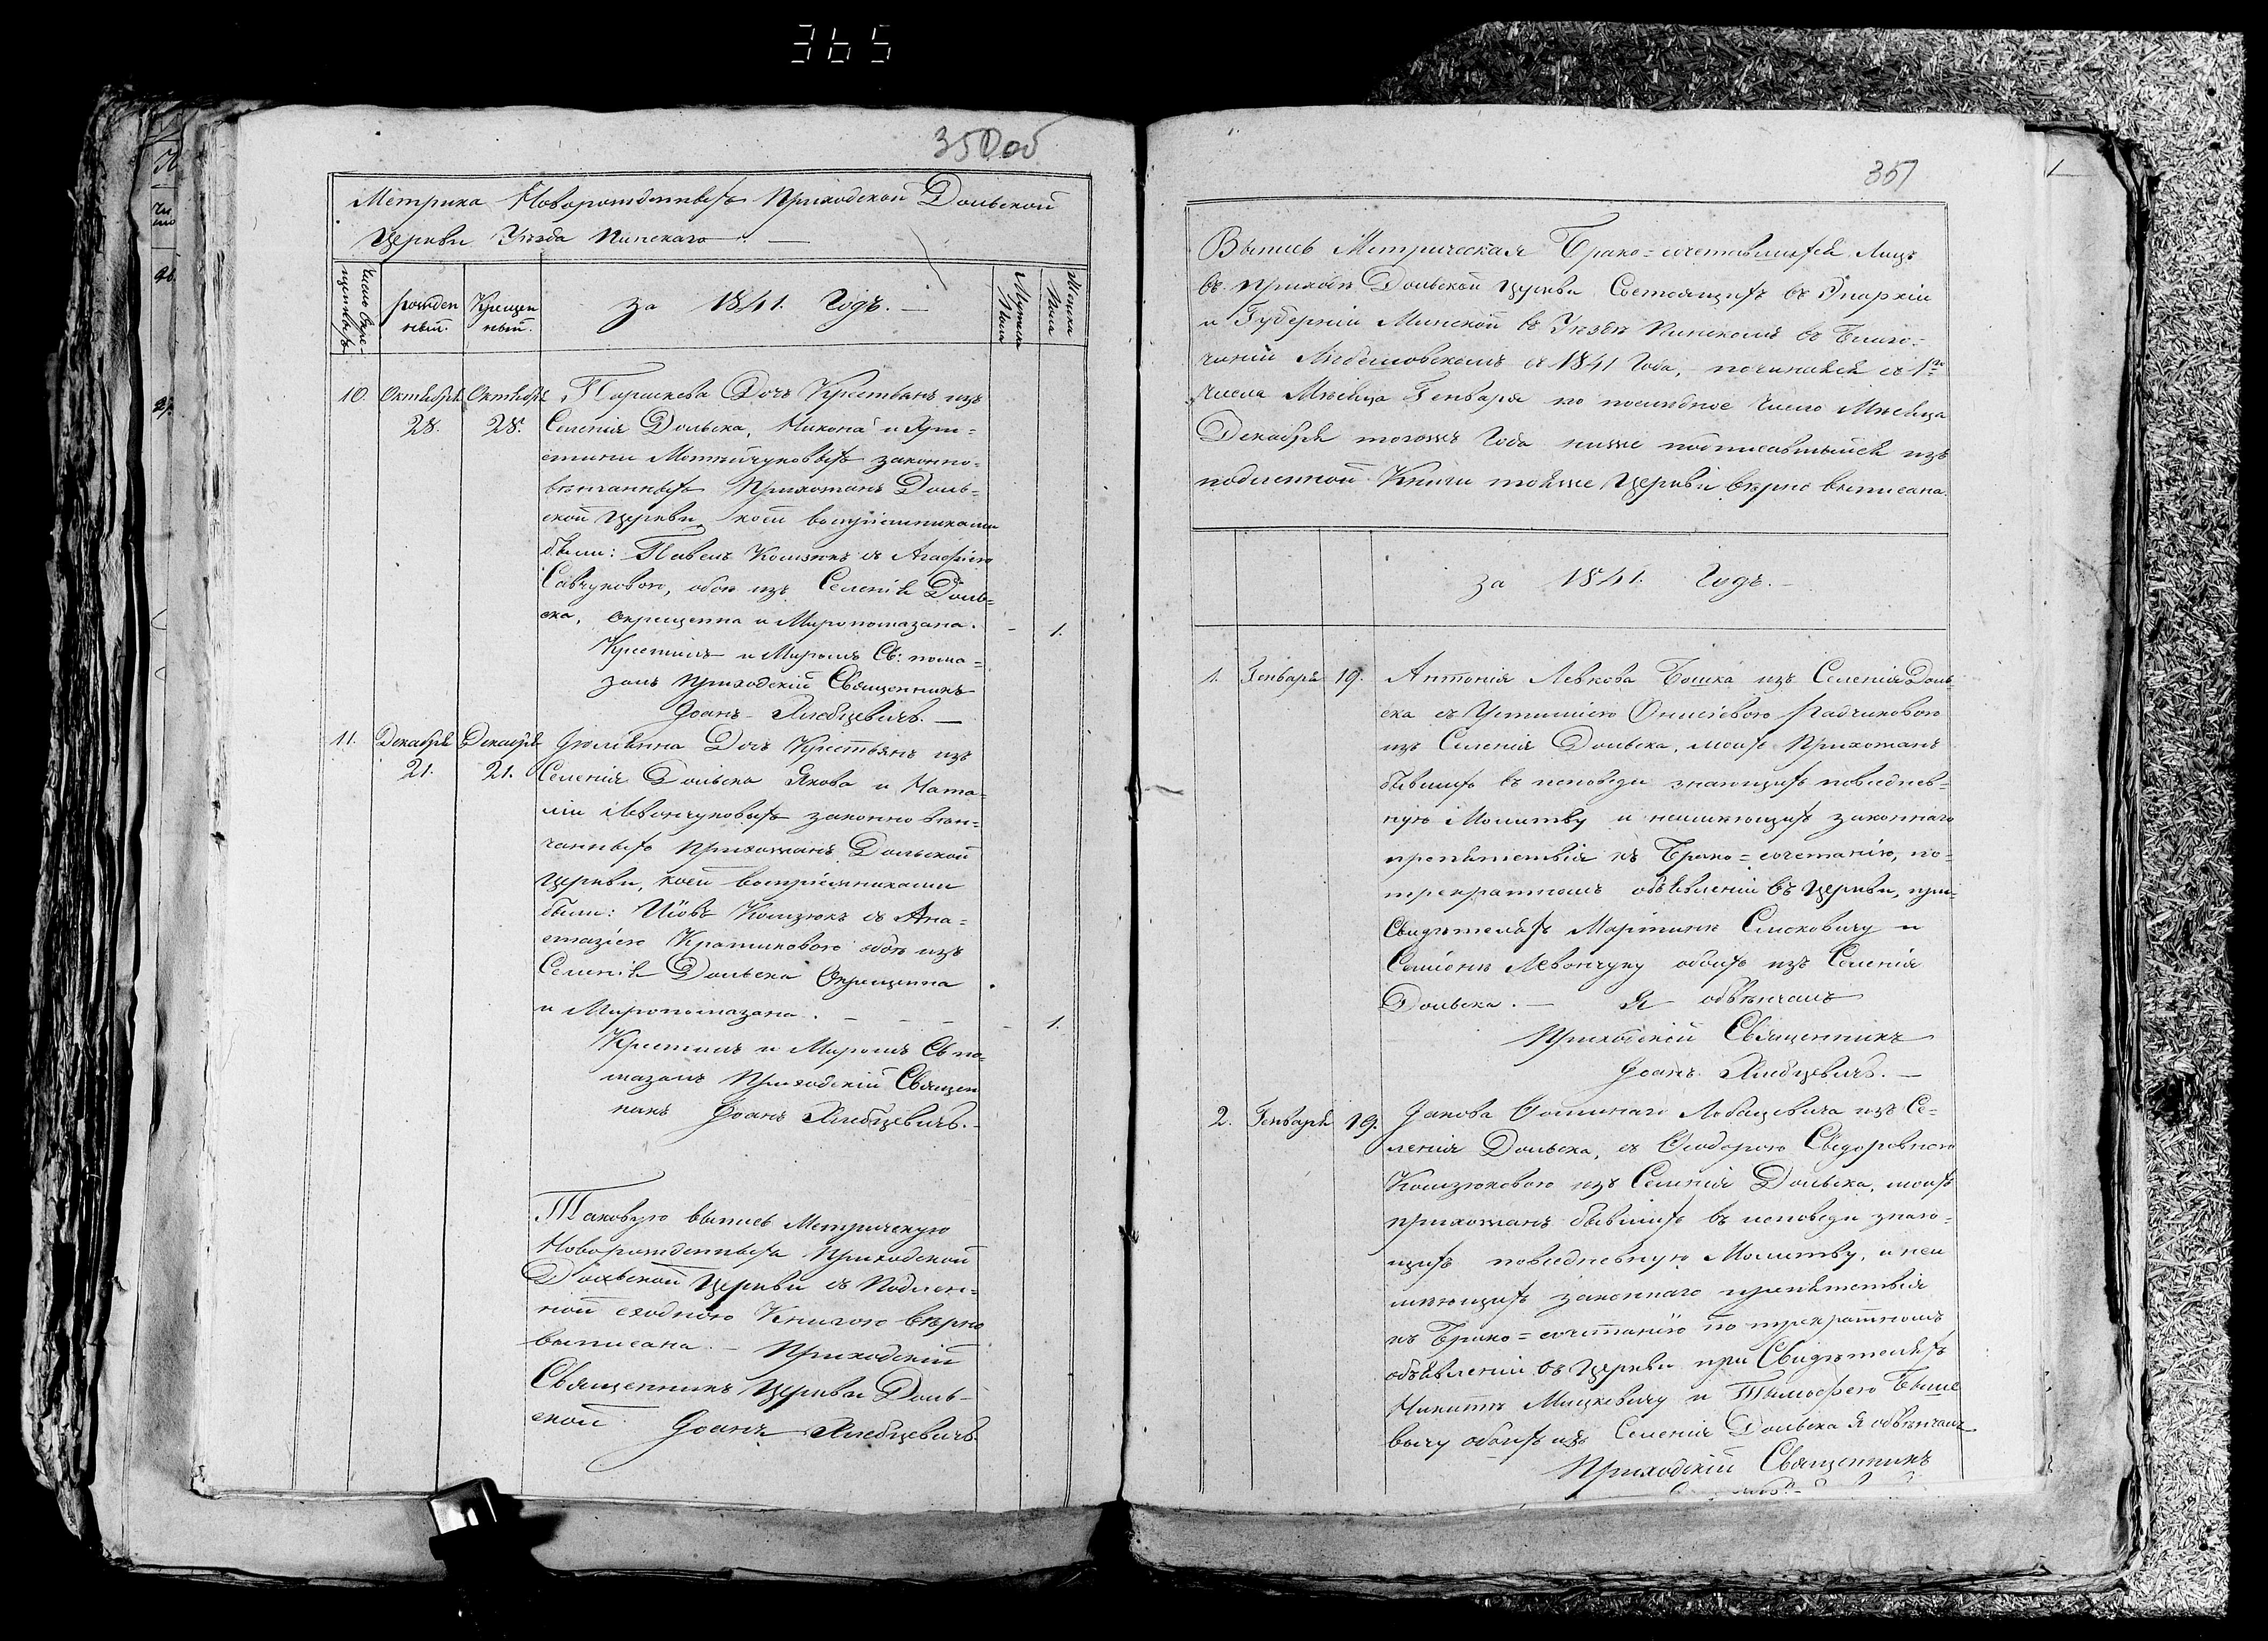 365
350 об
Метрика Новорожденныхъ Приходской Дольской
Церкви Уѣзда Пинскаго. —
Число Окре-
щенныхъ
рожден
ный.
Крещен
ный.
за 1841. Годъ. —
Мужеска
Пола
Женска
Пола
10. Октября Октября Параскева Дочь Крестьянъ изъ
28. 28. Селенія Дольска, Никона и Хри-
стини законно-
вѣнчанныхъ Прихожанъ Доль-
ской Церкви, коей воспріемниками
были: Павелъ Колзюкъ съ Агафіею
Савчуковою, обои изъ Селенія Доль-
ска, окрещенна и Миропомазана. - 1.
Крестилъ и Миромъ Св: пома-
залъ Приходскій Священникъ
Іоанъ Хлебцевичъ. —
11. Декабря Декабря Іюліянна Дочь Крестьянъ изъ
21. 21. Селенія Дольска Якова и Ната-
ліи Левончуковыхъ законно вѣн-
чанныхъ Прихожанъ Дольской
Церкви, коей воспріемниками
были: Иовъ Колзюкъ съ Ана-
стазіею обои изъ
Селенія Дольска Окрещенна
и Миропомазана. — — — - 1.
Крестилъ и Миромъ Св по-
мазалъ Приходскій Священ
никъ Іоанъ Хлебцевичъ. -
Таковую выпись Метрическую
Новорожденныхъ Приходской
Дольской Церкви съ Подлен-
ной сходною Книгою вѣрно
выписана. — Приходскій
Священникъ Церкви Доль-
ской Іоанъ Хлебцевичъ
351
Выпись Метрическая Брако=сочетавшихся Лицъ
въ Приходѣ Дольской Церкви Состоящихъ въ Эпархіи
и Губерніи Минской въ Уѣздѣ Пинскомъ въ Благо-
чиніи Любешовскомъ съ 1841 Года, починая съ 1го
числа Мѣсяца Генваря по последное число Мѣсяца
Декабря тогожъ Года ниже подписавшыйся изъ
подленной Книги тойже Церкви вѣрно выписана.
за 1841. Годъ. —
1. Генваря 19. Антонія Левкова Бошка изъ Селенія Доль-
ска съ Устиніею Онисіевою Радчиковою
изъ Селенія Дольска, моихъ Прихожанъ
бывшихъ въ исповеди знающихъ повседнев-
ную Молитву и неимѣющихъ законнаго
препятствія къ Брако=сочетанію, по-
трекратномъ объявленіи въ Церкви, при-
Свидѣтеляхъ Мартинѣ и
Симіонѣ Левончуку обоихъ изъ Селенія
Дольска. — Я обвѣнчалъ
Приходскій Священникъ
Іоанъ Хлебцевичъ. —
2. Генваря 19. Іакова Фоминаго Лобацевича изъ Се-
ленія Дольска, съ Феодорою
Колзюковою изъ Селенія Дольска, моихъ
прихожанъ бывшихъ въ исповеди знаю-
щихъ повседневную Молитву, и неи
мѣющихъ законнаго препятствія
къ Брако=сочетанію по трекратномъ
объявленіи въ Церкви при Свидѣтеляхъ
Никитѣ Мицкевичу и Тымофею
вичу обоихъ изъ Селенія Дольска Я обвѣнчалъ
Приходскій Священникъ